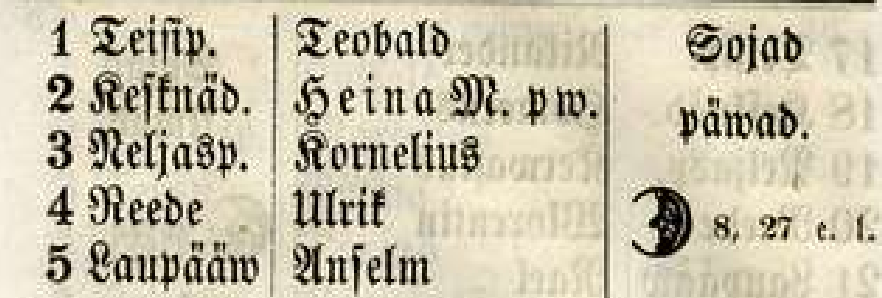 1 Teisip. Teobald Sojad
2 Kesknäd. Heina M. pw. päwad.
3 Neljasp. Kornelius
4 Reede Ulrik 8, 27 e. l.
5 Laupääw Anselm